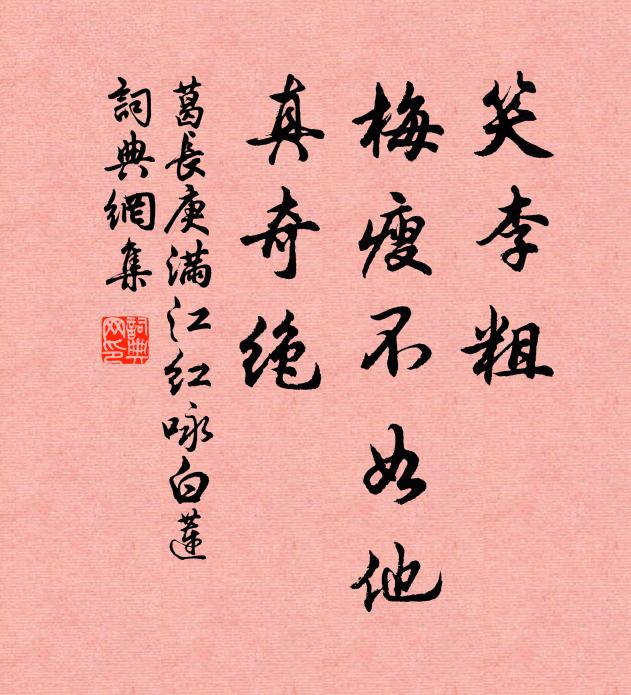 笑李粗
梅瘦不如他
真奇绝
葛长庚满江红咏白莲
詞典網集
詞典网印